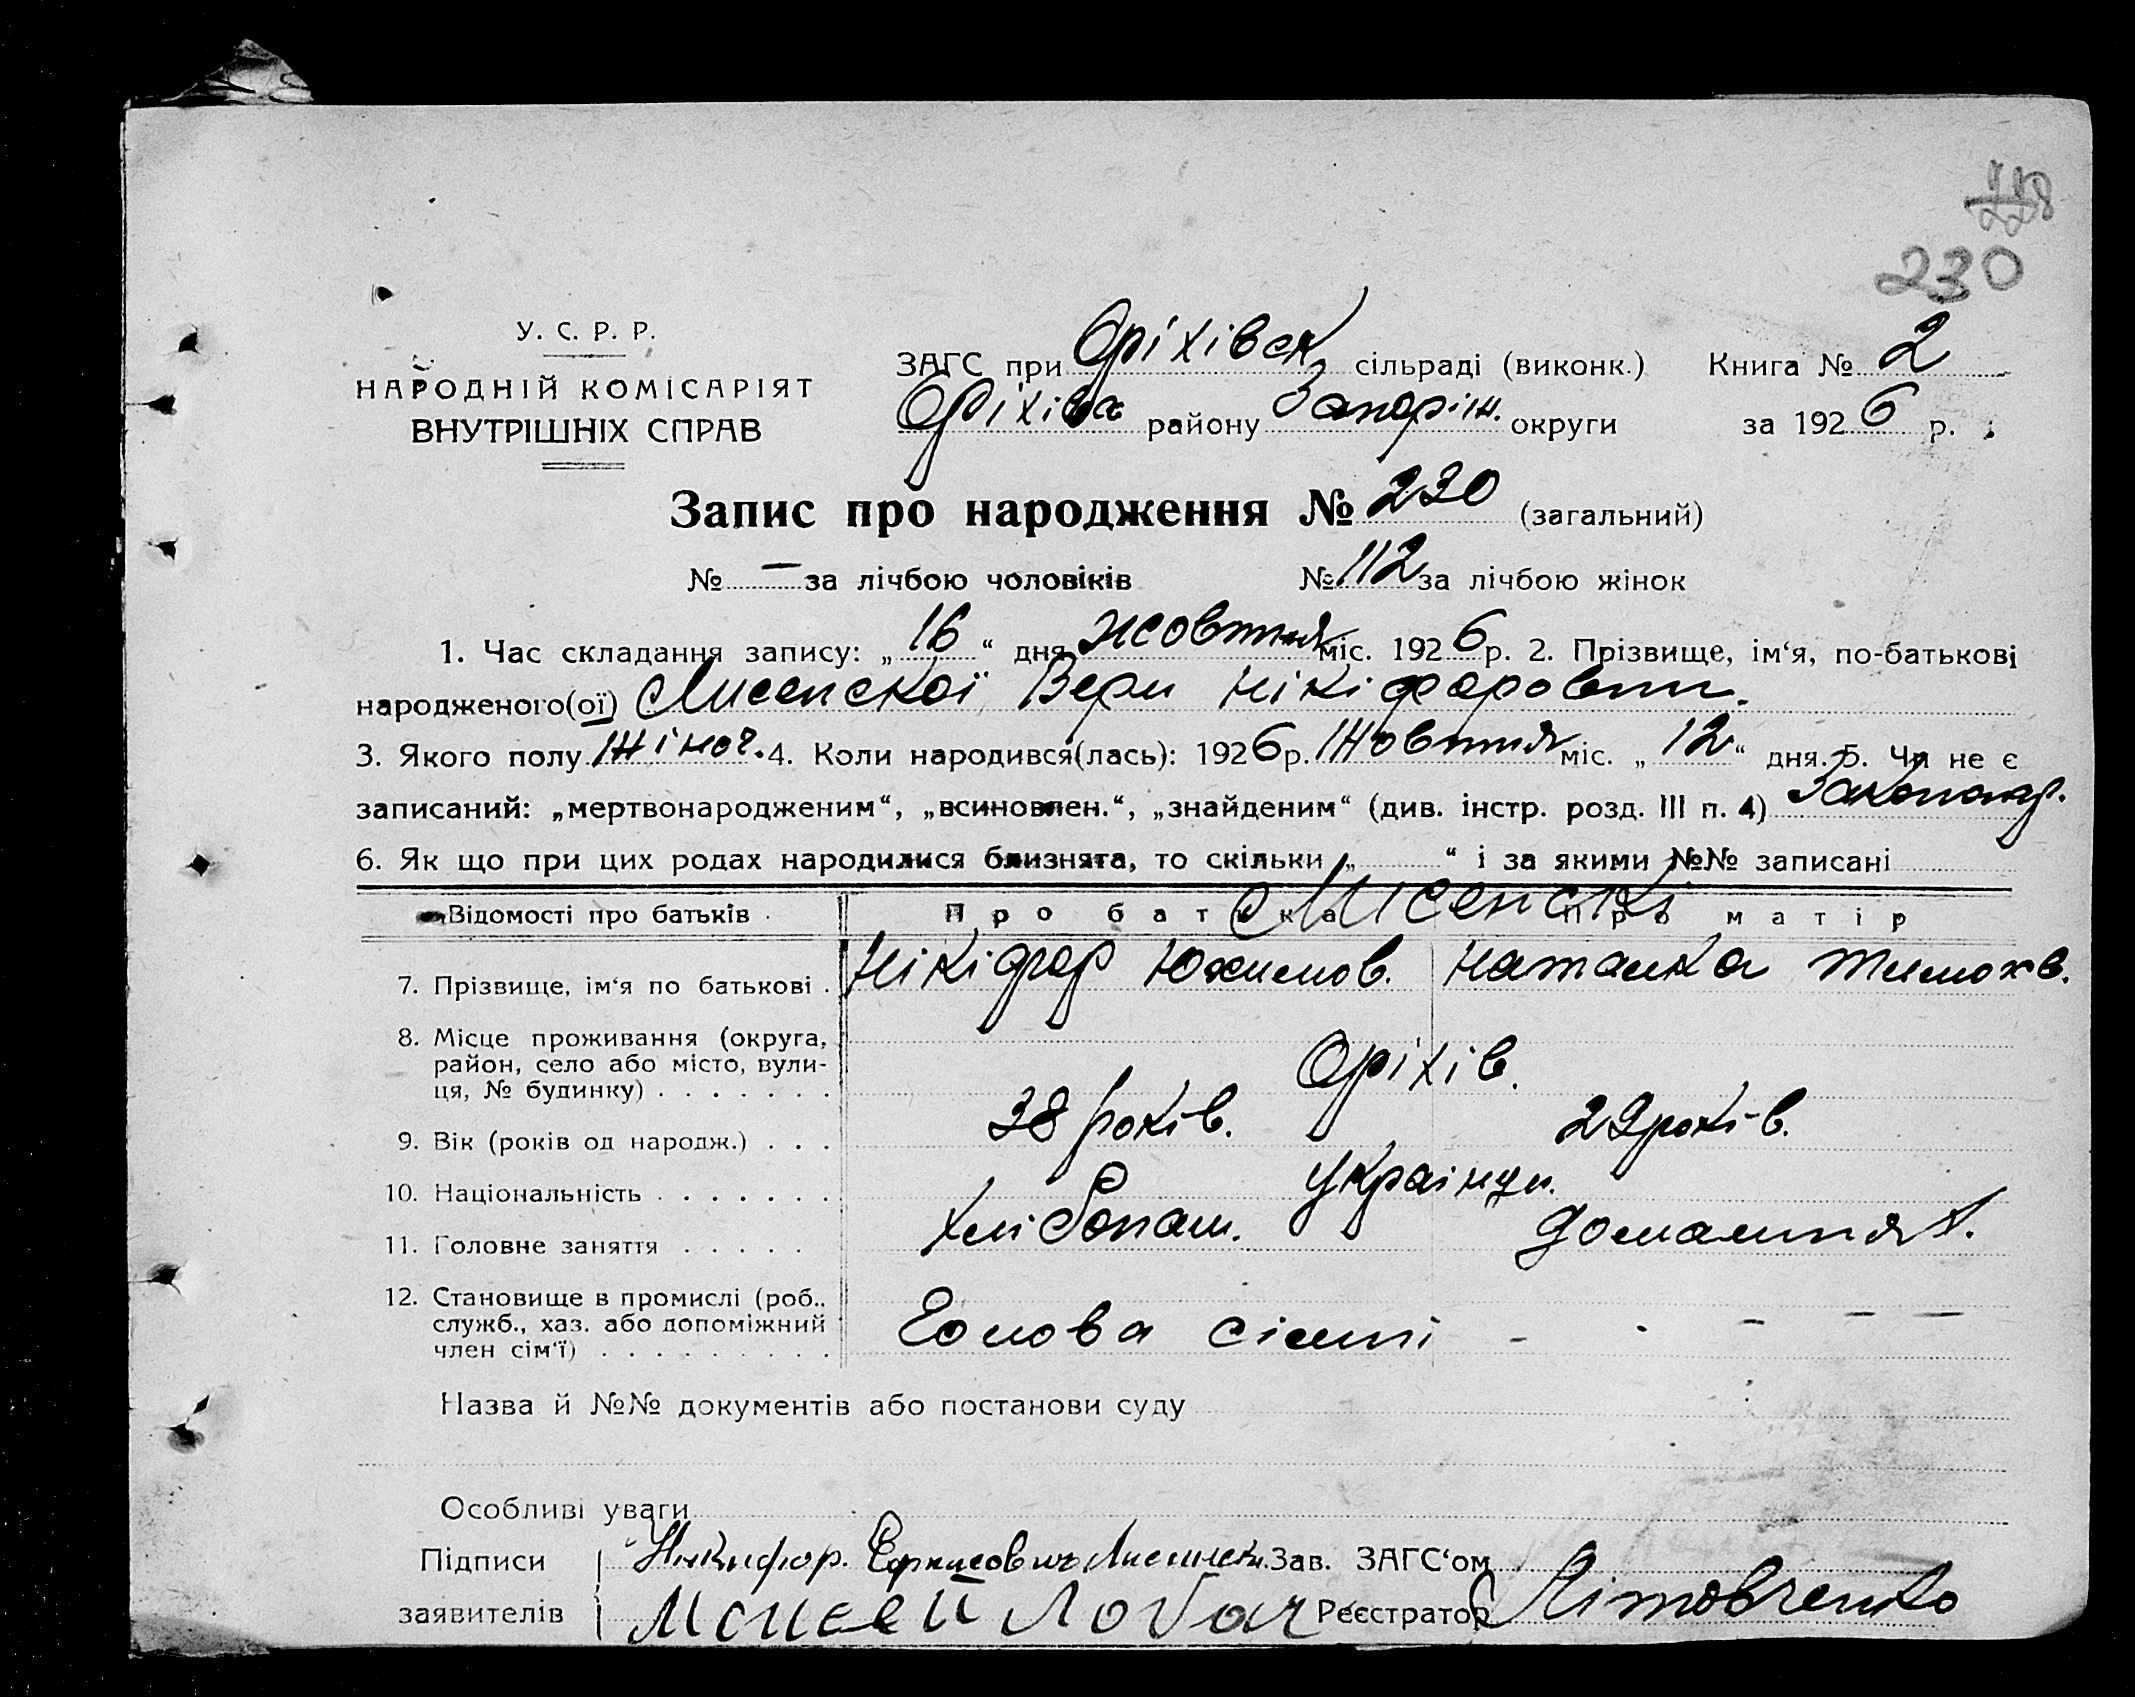 230
У. С. Р. Р.
НАРОДНІЙ КОМІСАРІЯТ
ВНУТРІШНІХ СПРАВ
ЗАГС при Оріхівск сільраді (виконк.) Книга № 2
Оріхівс району Запоріж. округи за 1926 р.
Запис про народження № 230 (загальний)
№ — за лічбою чоловіків № 112 за лічбою жінок
1. Час складання запису: „16“ дня жовтня міс. 1926 р. 2. Прізвище, ім‘я, по-батькові
народженого(ої) Лисенскої Вери Нікіфоровни.
3. Якого полу жіноч. 4. Коли народився(лась): 1926 р. жовтня міс. „12“ дня. 5. Чи не є
записаний: „мертвонародженим“, „всиновлен.“, „знайденим“ (див. інстр. розд. III п. 4)
6. Як що при цих родах народилися близнята, то скільки „ “ і за якими №№ записані
Відомості про батьків Про батька Про матір
Лисенскі
7. Прізвище, ім‘я по батькові . Нікіфор Юхимов. Наталка Тимохв.
8. Місце проживання (округа,
район, село або місто, вули-
ця, № будинку) . . . . . . . Оріхів.
9. Вік (років од народж.) . . . 38 років. 29 років.
10. Національність . . . . . . . Українци.
11. Головне заняття . . . . . Хлібопаш. Домашня
12. Становище в промислі (роб.,
служб., хаз. або допоміжний
член сім‘ї) . . . . . . . . . Голова сімті - - - - -
Назва й №№ документів або постанови суду
Особливі уваги
Підписи Никифор. Ефимович Зав. ЗАГС‘ом
заявителів Мойсей Лобач Реєстратор Літовченко